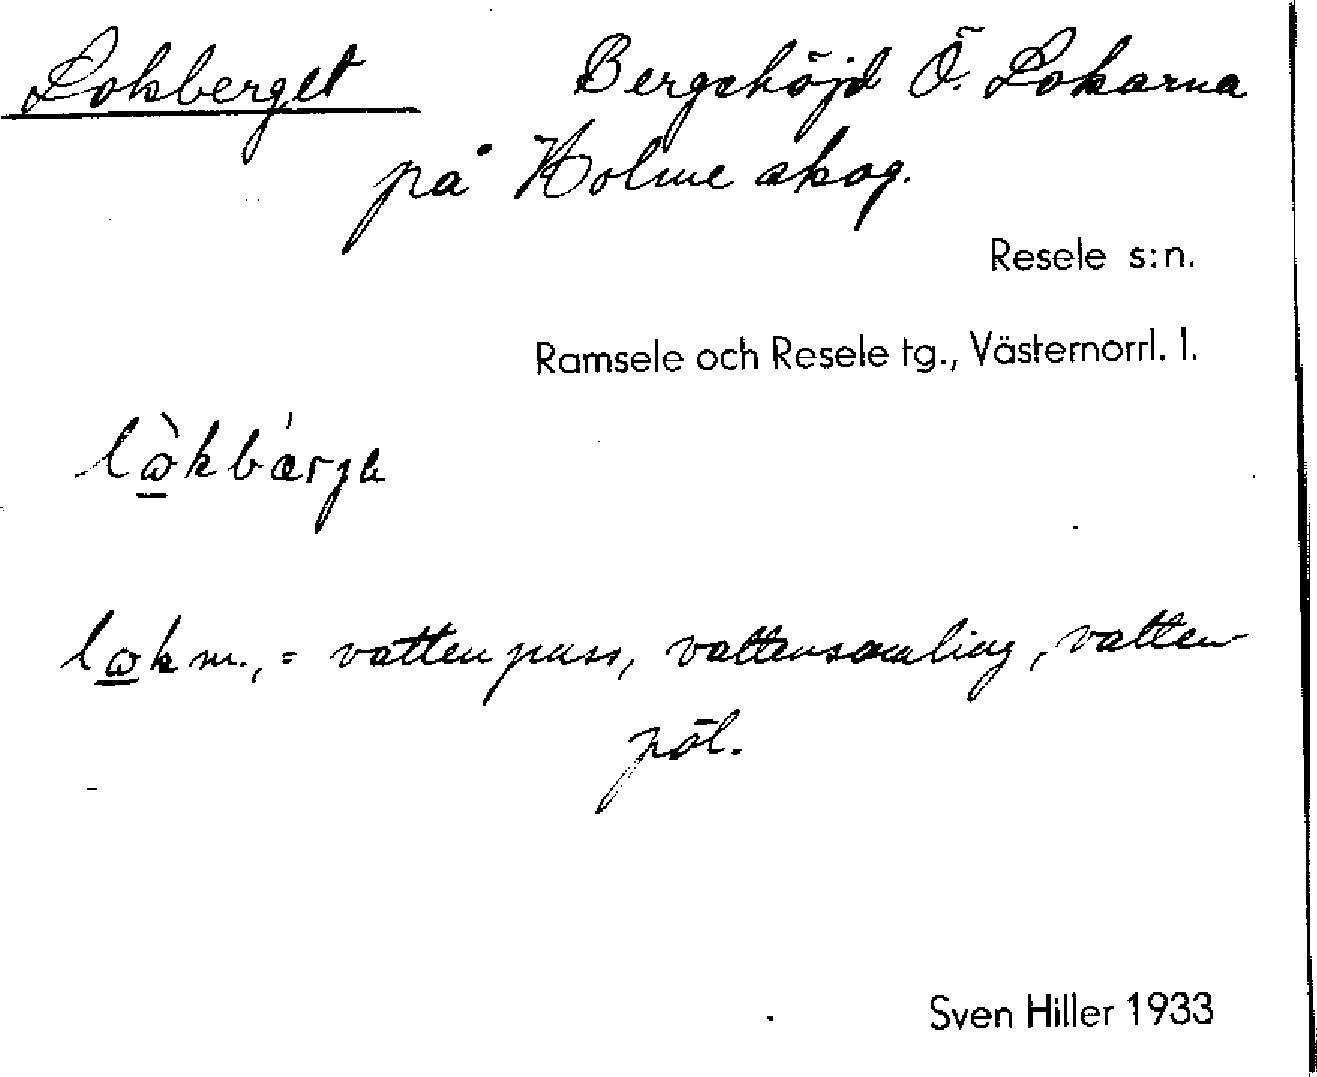 Lokberget Bergshöjd Ö. Lokarna
på Holme skog.
Resele s:n.
Ramsele och Resele tg., Västernorrl. l.
lὼ̲kbá̵rgɐ
lω̲k m., = vattenpuss, vattensamling, vatten-
pöl.
Sven Hiller 1933